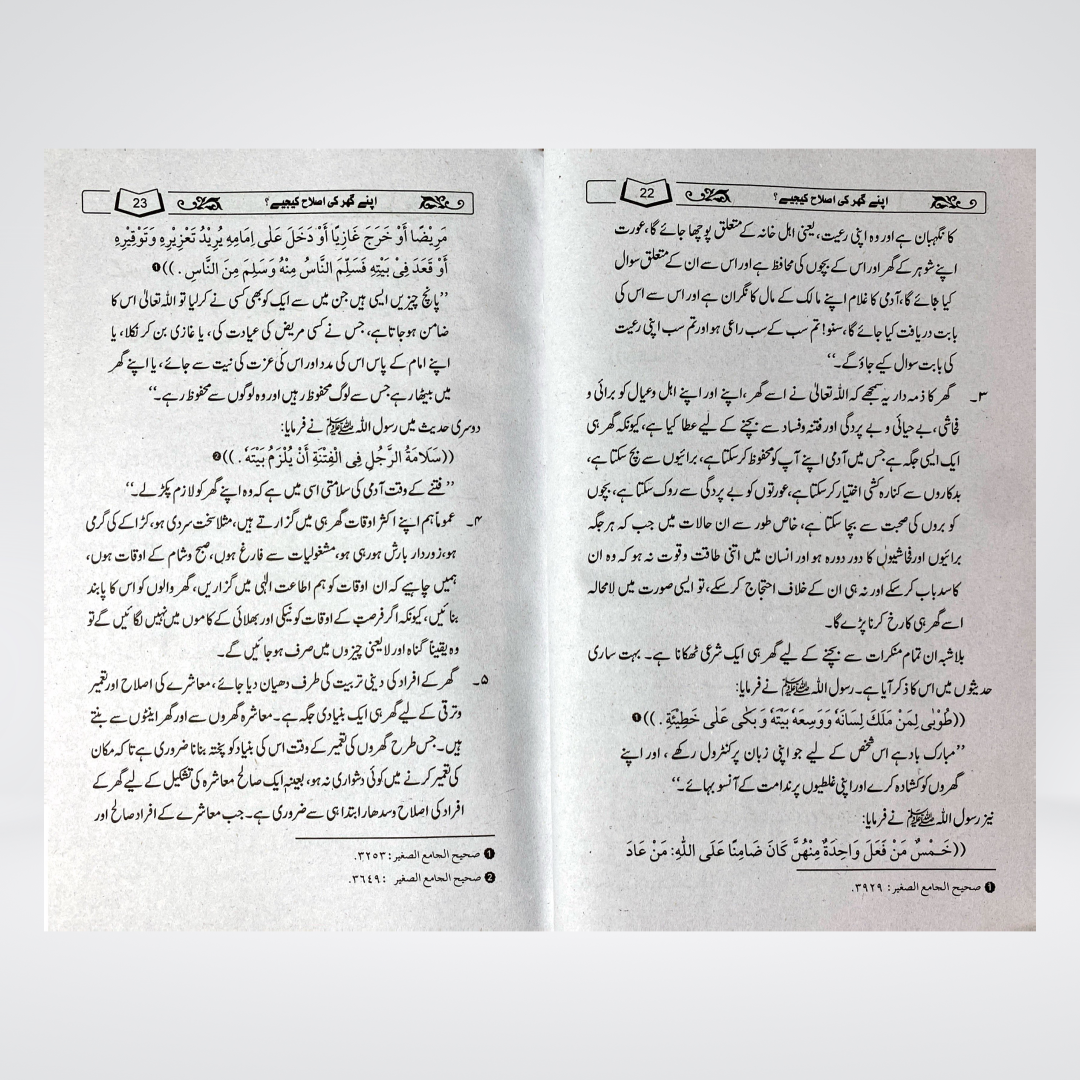 22
اپنے گھر کی اصلاح کیجیے؟
کا نگہبان ہے اور وہ اپنی رعیت، یعنی اہل خانہ کے متعلق پوچھا جائے گا، عورت
اپنے شوہر کے گھر اور اس کے بچوں کی محافظ ہے اور اس سے ان کے متعلق سوال
کیا جائے گا، آدمی کا غلام اپنے مالک کے مال کا نگران ہے اور اس سے اس کی
بابت دریافت کیا جائے گا، سنو! تم سب کے سب راعی ہو اور تم سب اپنی رعیت
کی بابت سوال کیے جاؤ گے۔‘‘
۳۔ گھر کا ذمہ دار یہ سمجھے کہ اللہ تعالیٰ نے اسے گھر، اپنے اور اپنے اہل وعیال کو برائی و
فحاشی، بے حیائی و بے پردگی اور فتنہ وفساد سے بچنے کے لیے عطا کیا ہے، کیونکہ گھر ہی
ایک ایسی جگہ ہے جس میں آدمی اپنے آپ کو محفوظ کر سکتا ہے، برائیوں سے بچ سکتا ہے،
بدکاروں سے کنارہ کشی اختیار کر سکتا ہے، عورتوں کو بے پردگی سے روک سکتا ہے، بچوں
کو بروں کی صحبت سے بچا سکتا ہے، خاص طور سے ان حالات میں جب کہ ہر جگہ
برائیوں اور فحاشیوں کا دور دورہ ہو اور انسان میں اتنی طاقت وقوت نہ ہو کہ وہ ان
کا سدباب کر سکے اور نہ ہی ان کے خلاف احتجاج کر سکے، تو ایسی صورت میں لامحالہ
اسے گھر ہی کا رخ کرنا پڑے گا۔
بلاشبہ ان تمام منکرات سے بچنے کے لیے گھر ہی ایک شرعی ٹھکانا ہے۔ بہت ساری
حدیثوں میں اس کا ذکر آیا ہے۔ رسول اللہ ﷺ نے فرمایا:
((طُوْبٰى لِمَنْ مَلَكَ لِسَانَهٗ وَوَسِعَهٗ بَيْتَهٗ وَبَكٰى عَلٰى خَطِيْئَةٍ . ))❶
’’مبارک باد ہے اس شخص کے لیے جو اپنی زبان پر کنٹرول رکھے، اور اپنے
گھروں کو کشادہ کرے اور اپنی غلطیوں پر ندامت کے آنسو بہائے۔‘‘
نیز رسول اللہ ﷺ نے فرمایا:
((خَمْسٌ مَنْ فَعَلَ وَاحِدَةٌ مِنْهُنَّ كَانَ ضَامِنًا عَلَى اللّٰهِ: مَنْ عَادَ
❶ صحيح الجامع الصغير: ٣٩٢٩.
23
اپنے گھر کی اصلاح کیجیے؟
مَرِيْضًا أَوْ خَرَجَ غَازِيًا أَوْ دَخَلَ عَلٰى اِمَامِهِ يُرِيْدُ تَعْزِيْرِهٖ وَتَوْقِيْرِهٖ
أَوْ قَعَدَ فِىْ بَيْتِهٖ فَسَلِّمَ النَّاسُ مِنْهُ وَسَلِمَ مِنَ النَّاسِ . ))❶
’’پانچ چیزیں ایسی ہیں جن میں سے ایک کو بھی کسی نے کر لیا تو اللہ تعالیٰ اس کا
ضامن ہو جاتا ہے، جس نے کسی مریض کی عیادت کی، یا غازی بن کر نکلا، یا
اپنے امام کے پاس اس کی مدد اور اس کی عزت کی نیت سے جائے، یا اپنے گھر
میں بیٹھا رہے جس سے لوگ محفوظ رہیں اور وہ لوگوں سے محفوظ رہے۔‘‘
دوسری حدیث میں رسول اللہ ﷺ نے فرمایا:
((سَلَامَةُ الرَّجُلِ فِى الْفِتْنَةِ أَنْ يُلْزَمُ بَيْتَهٗ . ))❷
’’فتنے کے وقت آدمی کی سلامتی اسی میں ہے کہ وہ اپنے گھر کو لازم پکڑ لے۔‘‘
۴۔ عموماً ہم اپنے اکثر اوقات گھر ہی میں گزارتے ہیں، مثلاً سخت سردی ہو، کڑاکے کی گرمی
ہو، زوردار بارش ہو رہی ہو، مشغولیات سے فارغ ہوں، صبح وشام کے اوقات ہوں،
ہمیں چاہیے کہ ان اوقات کو ہم اطاعت الٰہی میں گزاریں، گھر والوں کو اس کا پابند
بنائیں، کیونکہ اگر فرصت کے اوقات کو نیکی اور بھلائی کے کاموں میں نہیں لگائیں گے تو
وہ یقیناً گناہ اور لایعنی چیزوں میں صرف ہو جائیں گے۔
۵۔ گھر کے افراد کی دینی تربیت کی طرف دھیان دیا جائے، معاشرے کی اصلاح اور تعمیر
وترقی کے لیے گھر ہی ایک بنیادی جگہ ہے۔ معاشرہ گھروں سے اور گھر اینٹوں سے بنتے
ہیں۔ جس طرح گھروں کی تعمیر کے وقت اس کی بنیاد کو پختہ بنانا ضروری ہے تاکہ مکان
کی تعمیر کرنے میں کوئی دشواری نہ ہو، بعینہٖ ایک صالح معاشرہ کی تشکیل کے لیے گھر کے
افراد کی اصلاح وسدھار ابتدا ہی سے ضروری ہے۔ جب معاشرے کے افراد صالح اور
❶ صحيح الجامع الصغير: ٣٢٥٣.
❷ صحيح الجامع الصغير: ٣٦٤٩.